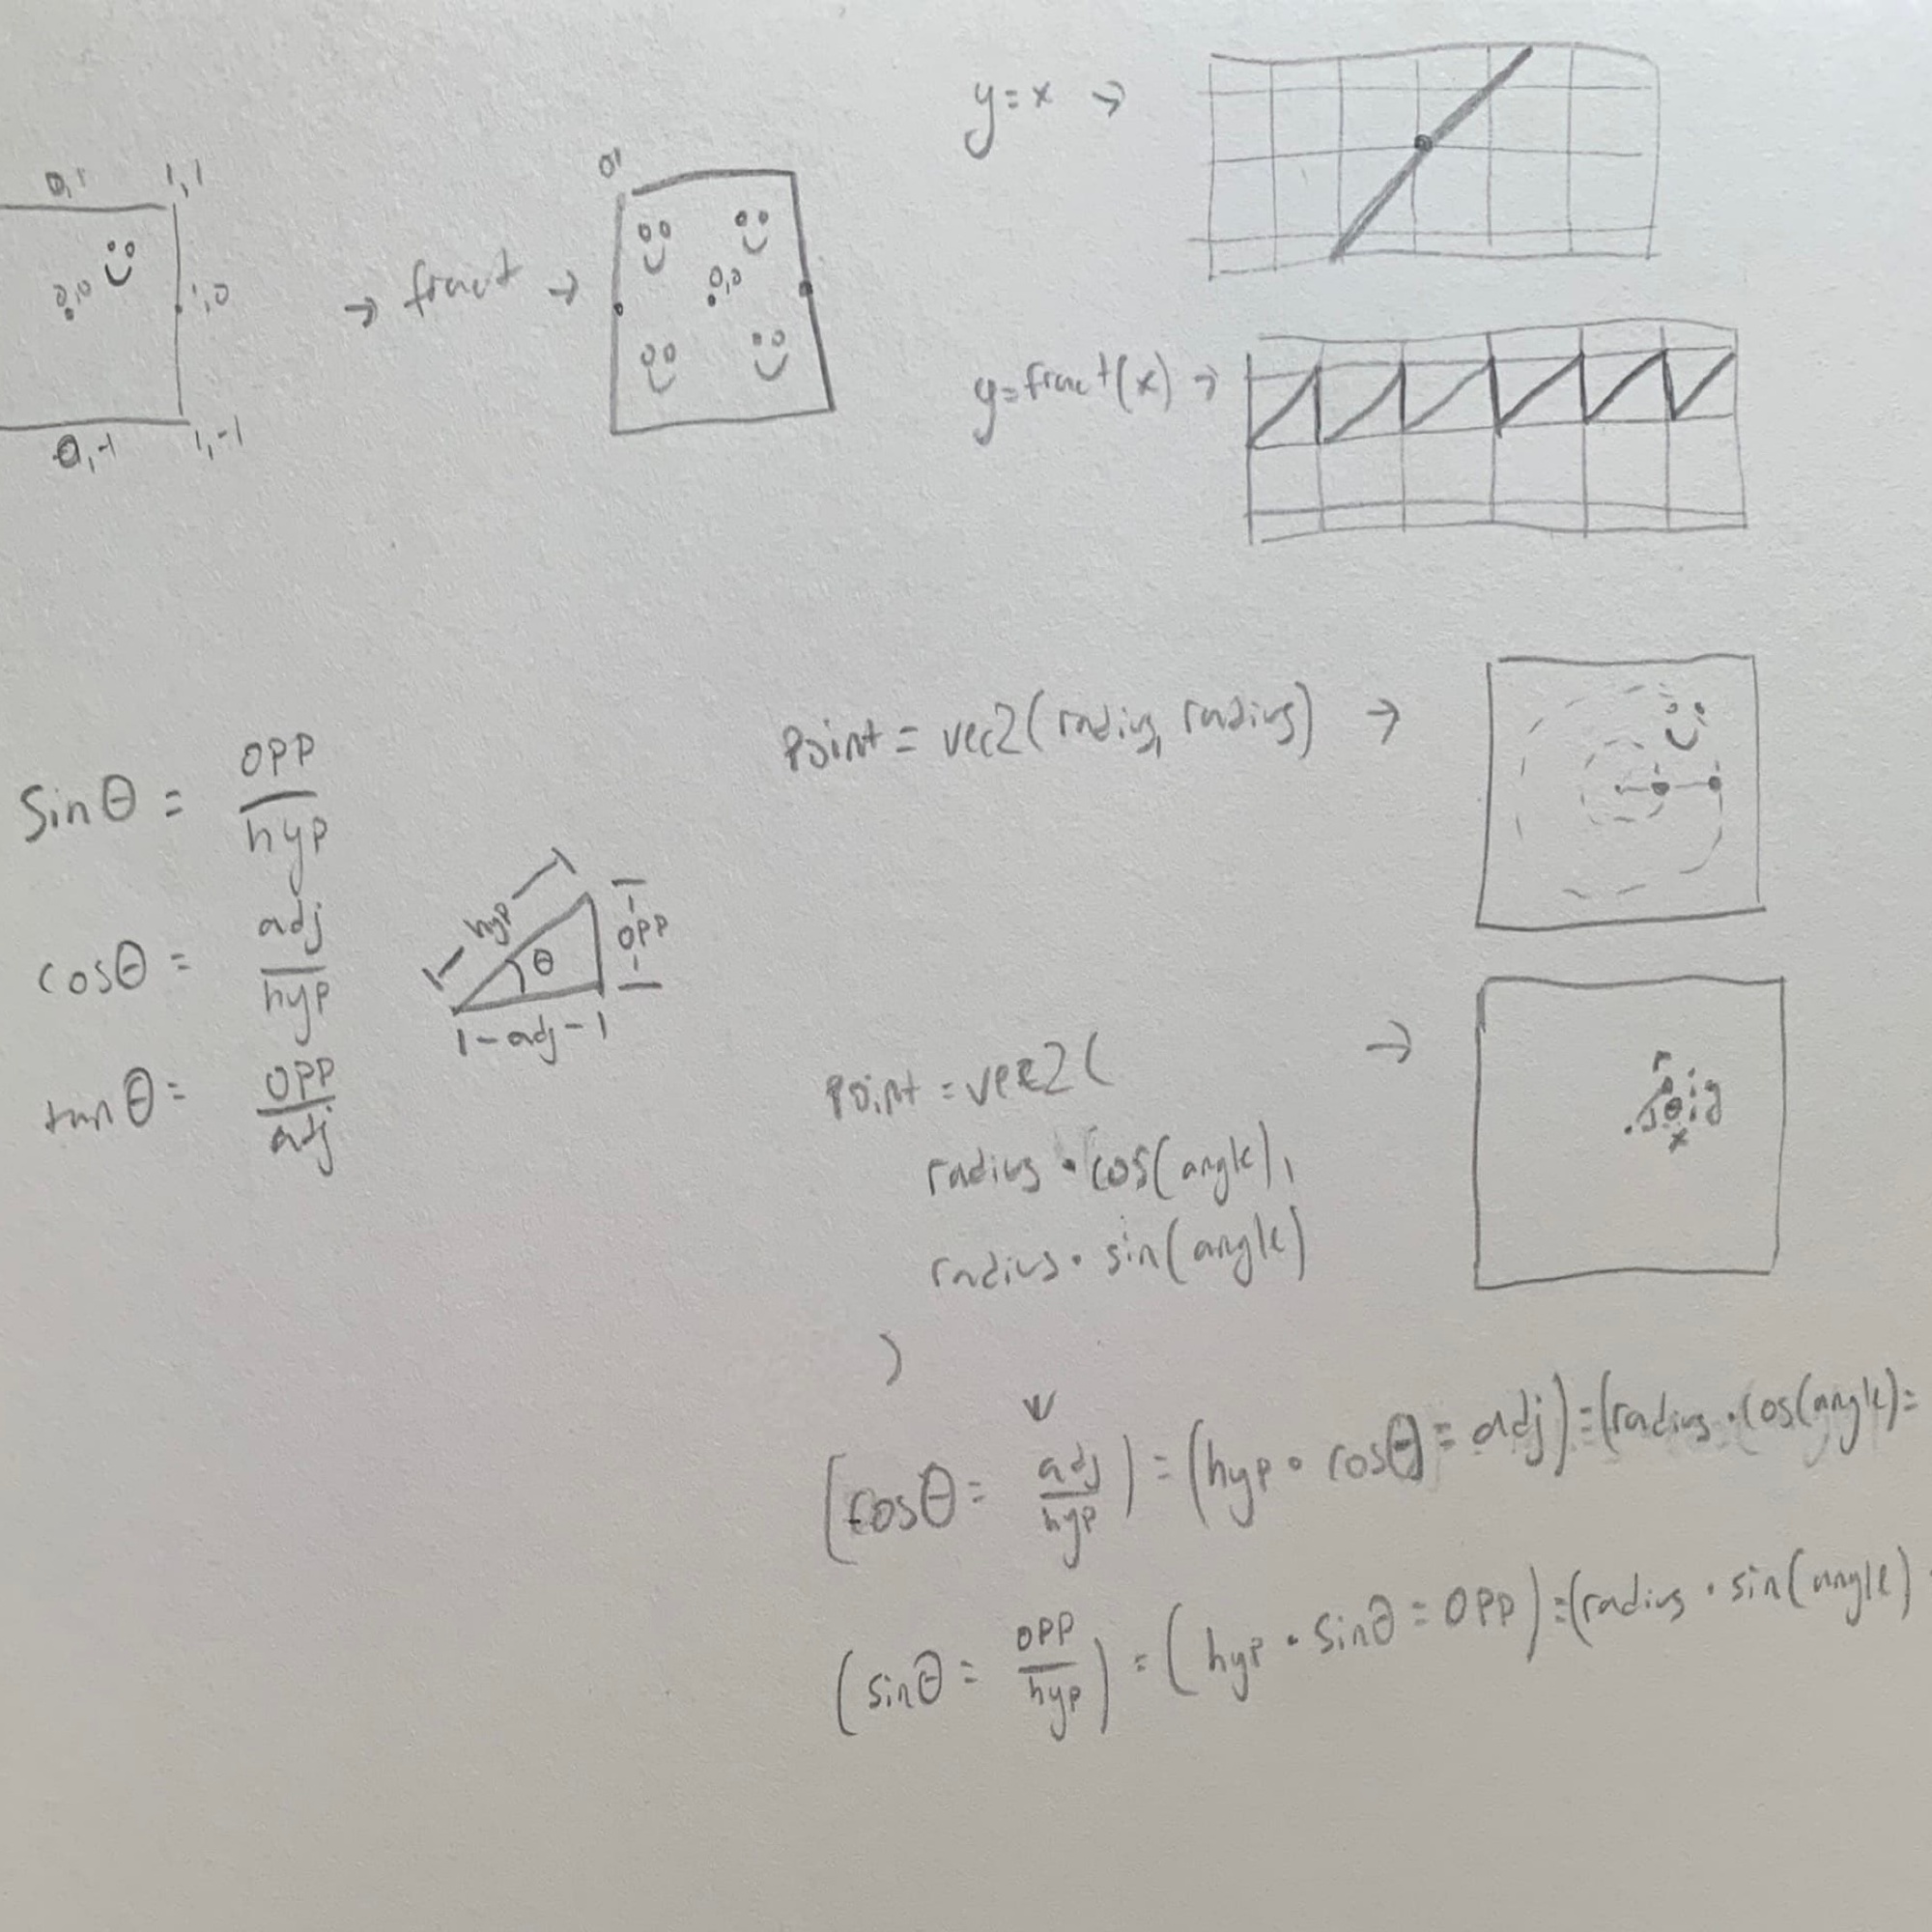 0,1
1,1
0,0
1,0
0,-1
1,-1
→ fract →
0,0
y=x →
y=fract(x) →
sinθ = opp/hyp
cosθ = adj/hyp
tanθ = opp/adj
hyp
θ
opp
adj
Point = vec2(radius, radius) →
Point = vec2( →
radius • cos(angle),
radius • sin(angle)
)
r
θ
y
x
(cosθ = adj/hyp) = (hyp • cosθ = adj) = (radius • cos(angle) =
(sinθ = opp/hyp) = (hyp • sinθ = opp) = (radius • sin(angle)